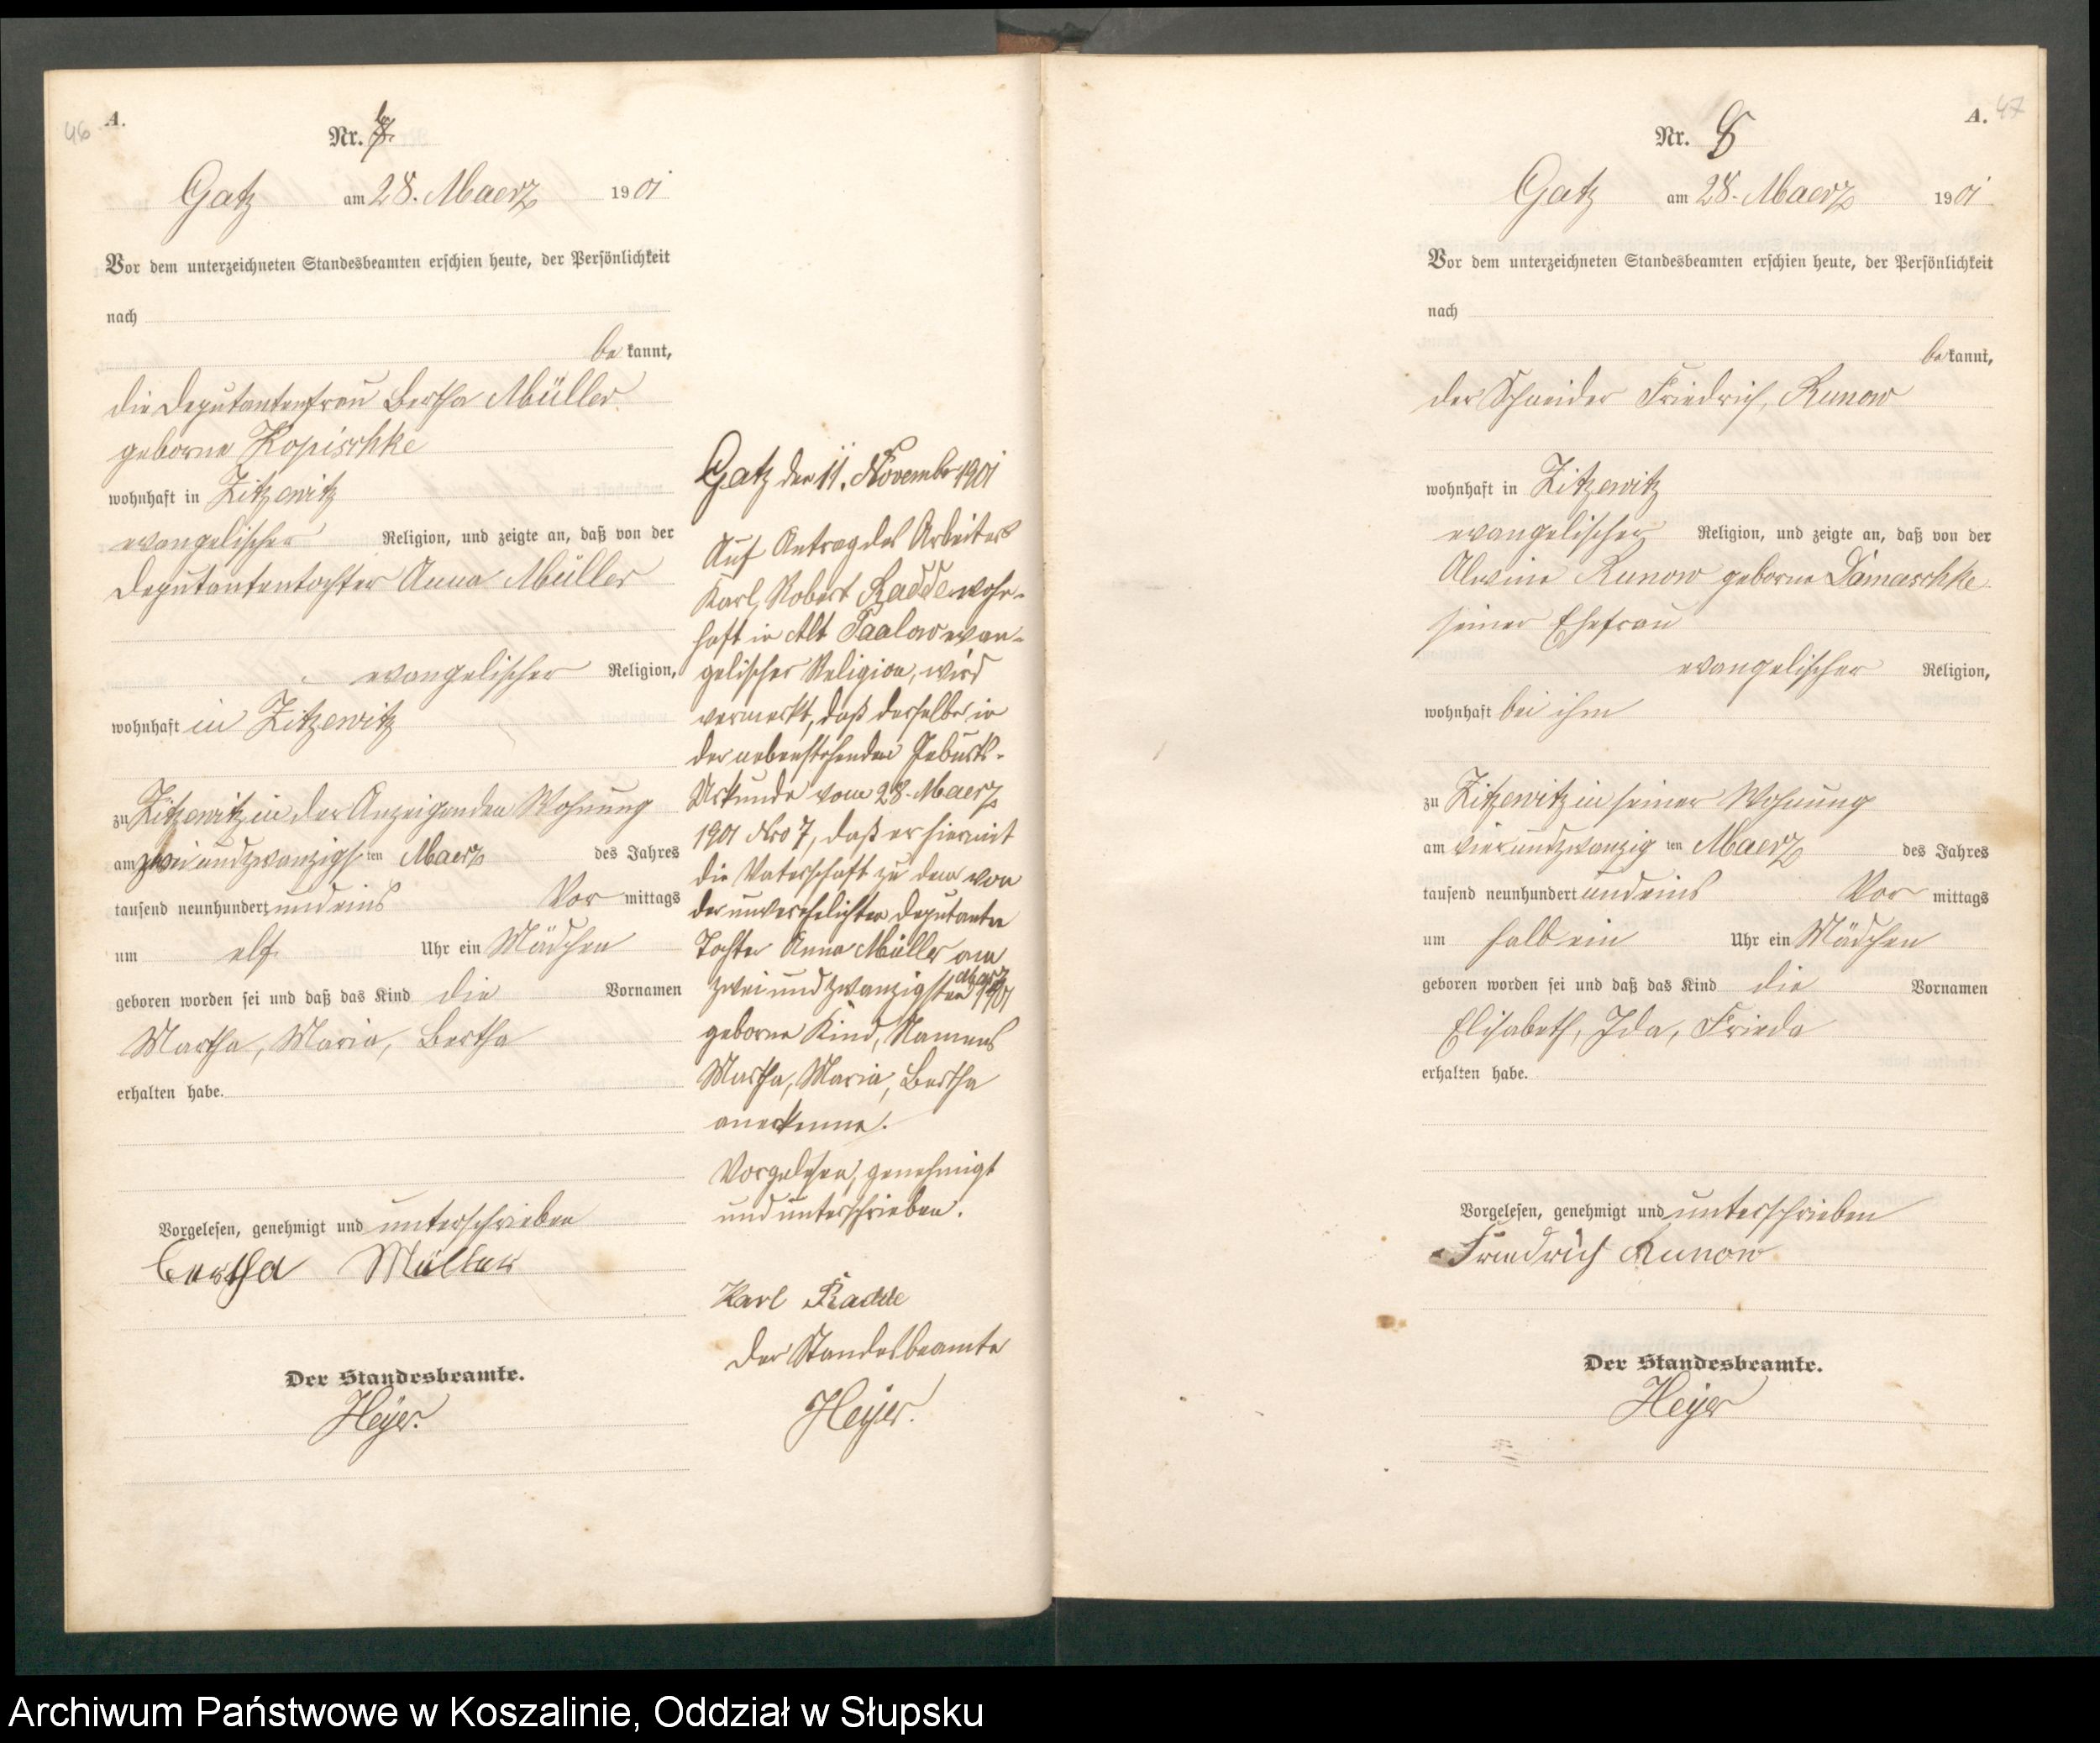 46
A.
Nr. 7.
Gatz am 28. Maerz 1901
Vor dem unterzeichneten Standesbeamten erschien heute, der Persönlichkeit
nach
be kannt,
die Deputantenfrau Bertha Müller
geborne Kopischke
wohnhaft in Zitzewitz
evangelischer Religion, und zeigte an, daß von der
Deputantentochter Anna Müller
evangelischer Religion,
wohnhaft in Zitzewitz
zu Zitzewitz in der Anzeigenden Wohnung
am zwei und zwanzigsten Maerz des Jahres
tausend neunhundert und eins Vor mittags
um elf Uhr ein Mädchen
geboren worden sei und daß das Kind die Vornamen
Martha, Maria, Bertha
erhalten habe.
Vorgelesen, genehmigt und unterschrieben
Bertha Müller
Der Standesbeamte.
Heyer.
Gatz den 11. November 1901
Auf Antrag des Arbeiters
Karl, Robert Radde wohn-
haft in Alt Paalow evan-
gelischer Religion, wird
vermerkt, daß derselbe in
der nebenstehenden Geburts-
Urkunde vom 28. Maerz
1901 Nro 7, daß er hiermit
die Vaterschaft zu dem von
der unverehelichten Deputanten
Tochter Anna Müller am
zwei und zwanzigsten Maerz 1901
geborne Kind, Namens
Martha, Maria, Bertha
anerkenne.
Vorgelesen, genehmigt
und unterschrieben.
Karl Radde
Der Standesbeamte
Heyer.
A. 47
Nr. 8
Gatz am 28. Maerz 1901
Vor dem unterzeichneten Standesbeamten erschien heute, der Persönlichkeit
nach
be kannt,
der Schneider Friedrich, Runow
wohnhaft in Zitzewitz
evangelischer Religion, und zeigte an, daß von der
Alwine Runow geborne Damaschke
seiner Ehefrau
evangelischer Religion,
wohnhaft bei ihm
zu Zitzewitz in seiner Wohnung
am vier und zwanzig ten Maerz des Jahres
tausend neunhundert und eins Vor mittags
um halb ein Uhr ein Mädchen
geboren worden sei und daß das Kind die Vornamen
Elisabeth, Ida, Frieda
erhalten habe.
Vorgelesen, genehmigt und unterschrieben
Friedrich Runow
Der Standesbeamte.
Heyer
Archiwum Państwowe w Koszalinie, Oddział w Słupsku